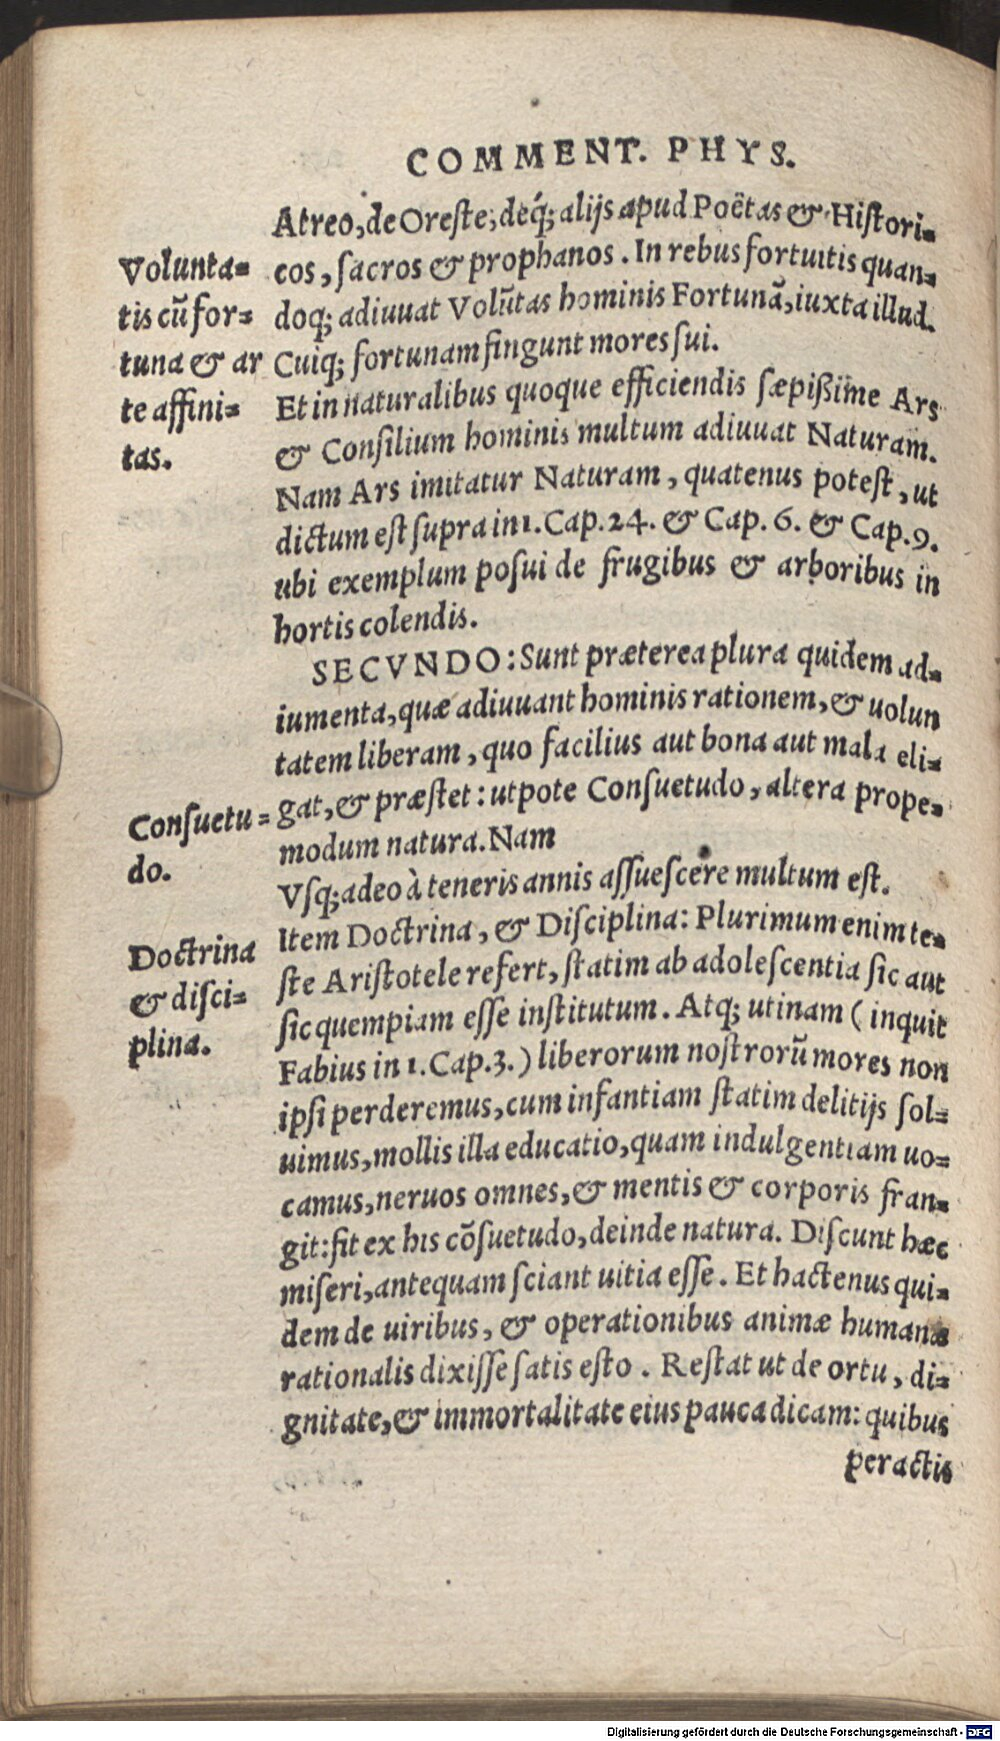 COMMENT. PHYS.
Atreo, de Oreſte, deq́; alijs apud Poëtas & Hiſtori-
cos, ſacros & prophanos. In rebus fortuitis quan-
doq; adiuuat Volũtas hominis Fortunã, iuxta illud.
Cuiq; fortunam fingunt mores ſui.
Volunta-
tis cũ for-
tuna & ar
te affini-
tas.
Et in naturalibus quoque efficiendis ſæpißime Ars
& Conſilium hominis multum adiuuat Naturam.
Nam Ars imitatur Naturam, quatenus poteſt, ut
dictum eſt ſupra in 1. Cap. 24. & Cap. 6. & Cap. 9.
ubi exemplum poſui de frugibus & arboribus in
hortis colendis.
SECVNDO: Sunt præterea plura quidem ad-
iumenta, quæ adiuuant hominis rationem, & uolun
tatem liberam, quo facilius aut bona aut mala eli-
gat, & præſtet: utpote Conſuetudo, altera prope-
modum natura. Nam
Conſuetu-
do.
Vſq; adeo à teneris annis aſſueſcere multum eſt.
Item Doctrina, & Diſciplina: Plurimum enim te-
ſte Ariſtotele refert, ſtatim ab adoleſcentia ſic aut
ſic quempiam eſſe inſtitutum. Atq; utinam (inquit
Doctrina
& diſci-
plina.
Fabius in 1. Cap. 3.) liberorum noſtrorũ mores non
ipſi perderemus, cum infantiam ſtatim delitijs ſol-
uimus, mollis illa educatio, quam indulgentiam uo-
camus, neruos omnes, & mentis & corporis fran-
git: fit ex his cõſuetudo, deinde natura. Diſcunt hæc
miſeri, antequam ſciant uitia eſſe. Et hactenus qui-
dem de uiribus, & operationibus animæ humanæ
rationalis dixiſſe ſatis eſto. Reſtat ut de ortu, di-
gnitate, & immortalitate eius pauca dicam: quibus
peractis
Digitalisierung gefördert durch die Deutsche Forschungsgemeinschaft - DFG